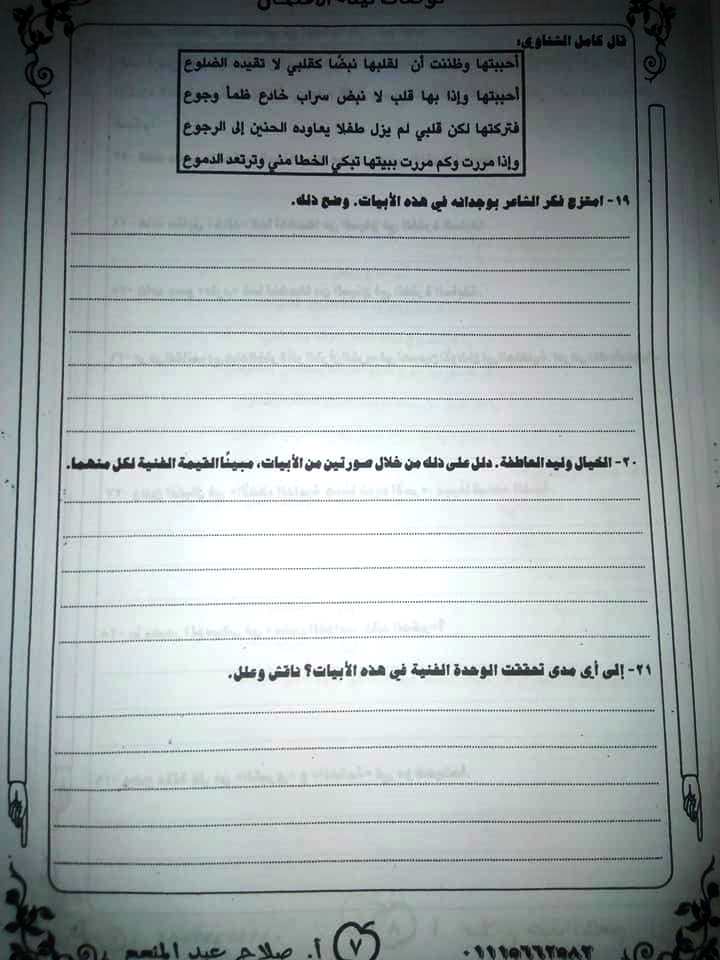 توقعات ليلة الامتحان
قال كامل الشناوى:
أحببتها وظننت أن لقلبها نبضًا كقلبي لا تقيده الضلوع
أحببتها وإذا بها قلب لا نبض سراب خادع ظمأ وجوع
فتركتها لكن قلبي لم يزل طفلا يعاوده الحنين إلى الرجوع
وإذا مررت وكم مررت ببيتها تبكي الخطا مني وترتعد الدموع
١٩- امتزج فكر الشاعر بوجدانه في هذه الأبيات. وضح ذلك.
٢٠- الخيال وليد العاطفة. دلل على ذلك من خلال صورتين من الأبيات، مبينًا القيمة الفنية لكل منهما.
٢١- إلى أى مدى تحققت الوحدة الفنية في هذه الأبيات؟ ناقش وعلل.
٠١١١٢٥٦٦٢٥٨٢ ٧ أ. صلاح عبد المنعم